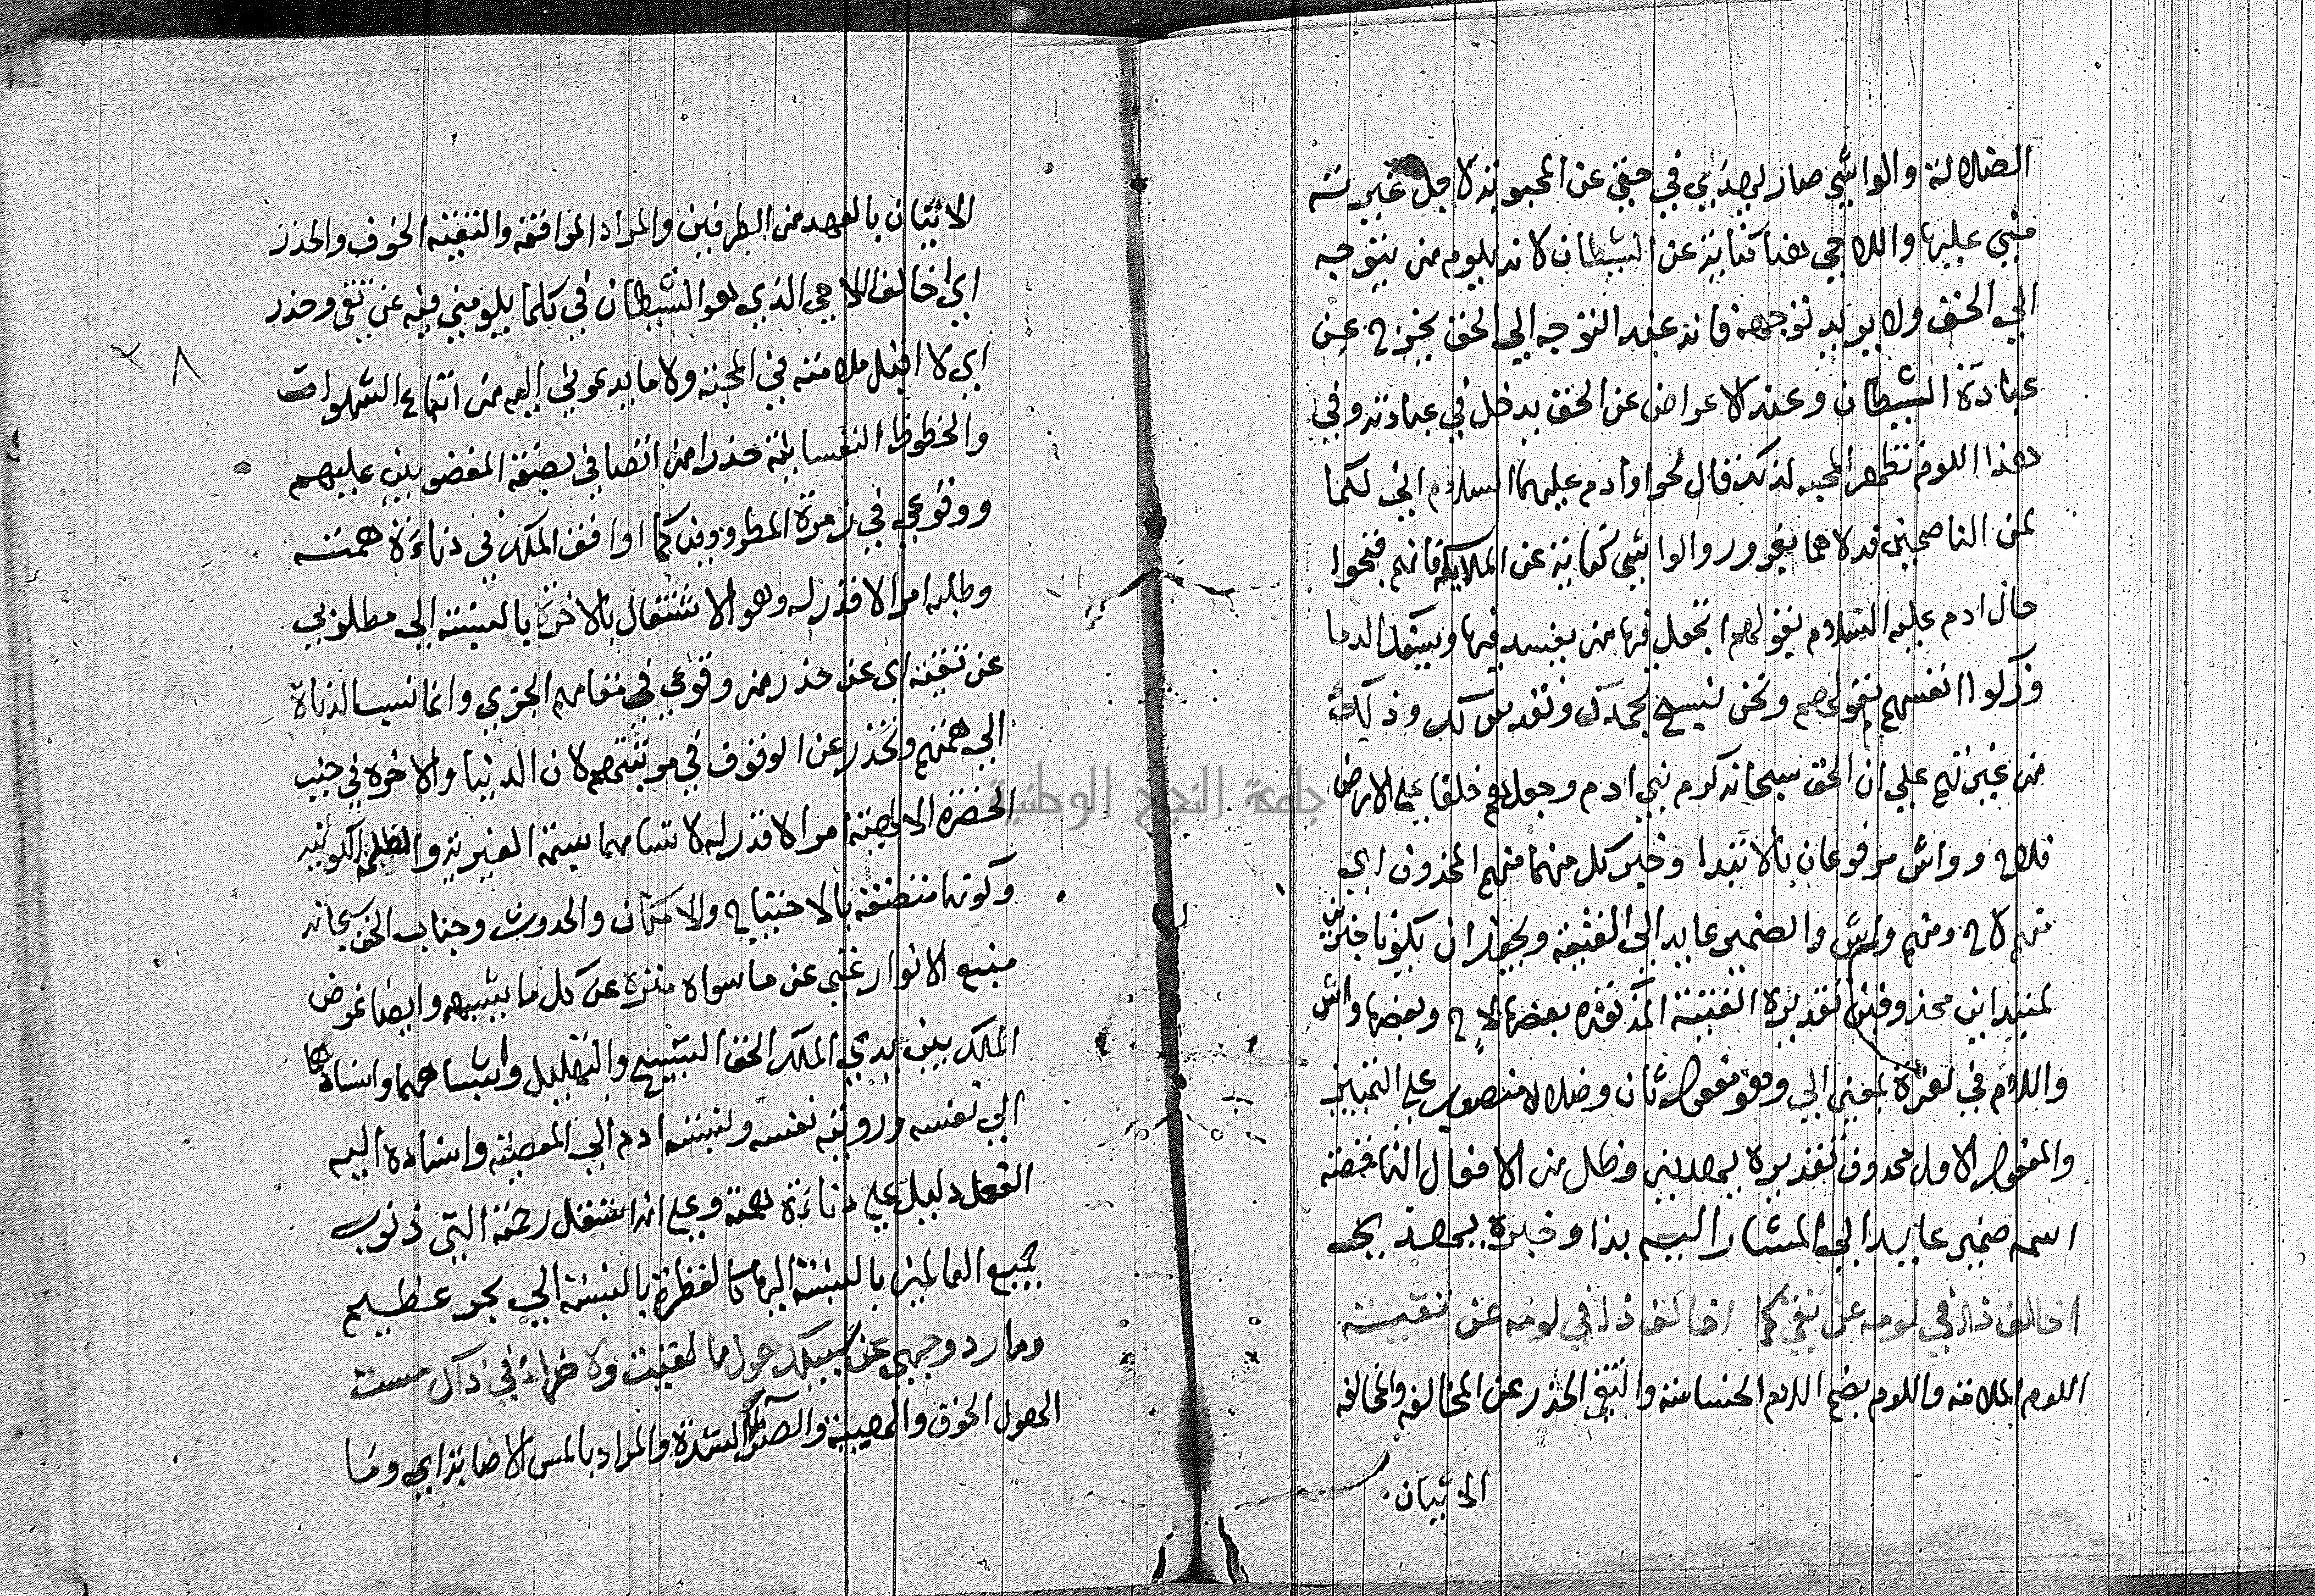 الضلالة والواشي صار يهذي بي في حقي عن المحبوبة لاجل غيرته
مني عليها واللاحي هنا كناية عن الشيطان لانه يلوم من يتوجه
الي الحق ولا يريد توجهه فانه عند التوجه الي الحق يخرج عن
عبادة الشيطان وعند الاعراض عن الحق يدخل في عبادته وفي
هذا اللوم تظهر المحبه لذلك قال لحوا وادم عليهما السلام اني لكما
لمن الناصحين فدلاهما بغرور والواشي كناية عن الملايكه فانهم فتحوا
حال ادم عليه السلام بقولهم اتجعل فيها من يفسد فيها ويسفك الدما
وزكوا انفسهم بقولهم ونحن نسبح بحمدك ونقدس لك وذلك
من غيرتهم علي ان الحق سبحانه كرم بني ادم وجعلهم خلفا علي الارض
فلاح وواش مرفوعان بالابتدا وخبر كل منهما منهم المحذوف اي
منهم لاح ومنهم واش والضمير عايد الي الفئية ويجوز ان يكونا خبرين
لمبتداين محذوفين تقديره الفتية المذكوره بعضها لاح وبعضها واش
واللام في لغرة بمعني الي وهو مفعول ثان وضلالا منصوب علي التمييز
والمفعول الاول محذوف تقديره يهديني وظل من الافعال الناقصة
اسمه ضمير عايد الي المشار اليه بذا وخبره يهذي بي
اخالف ذا في لومه عن تقي كما اخالف ذا في لومه عن تقية
اللوم الملامه واللوم بضم اللام الخساسة والتقي الحذر عن المخالفه والمخالفه
الاتيان
الاتيان بالعهد من الطرفين والمراد الموافقه والتقية الخوف والحذر
اي اخالف اللاحي الذي هو الشيطان في كلما يلومني فيه عن تقي وحذر
٢٨
اي لا اقبل ملامته في المحبة ولا ما يدعوني اليه من اتباع الشهوات
والحظوظ النفسانية حذرا من اتصافي بصفة المغضوبين عليهم
ووقوعي في زمرة المطرودين كما اوافق الملك في دناءة همته
وطلبه امرا لا قدر له وهو الاشتغال بالاخرة بالنسبة الي مطلوبي
عن تقية اي عن حذر من وقوعي في مقامهم الجزي وانما نسب الدناة
الي همتهم وتحذر عن الوقوف في مرتبتهم لان الدنيا والاخرة في جنب
الحضرة الالهية امرا لا قدر له لاتسامهما بسمة الغيرية والظلمة الكونية
وكونها متصفة بالاحتياج والامكان والحدوث وجناب الحق سبحانه
منبع الانوار غني عن ما سواه منزه عن كل ما يشبهه وايضا غرض
الملك بين يدي الملك الحق التسبيح والتهليل واشباههما واسنادها
الي نفسه ورويته نفسه ونسبة ادم الي المعصية واسناده اليه
الفعل دليل علي دناءة همته وعلي انه استقل رحمة التي ذنوب
جميع العالمين بالنسبة اليها كالقطرة بالنسبة الي بحر عظيم
وما رد وجهي عن سبيلك هول ما لقيت ولا ضراء في ذاك مست
الهول الخوف والمصيبة والضراء الشدة والمراد بالمس الاصابة اي وما